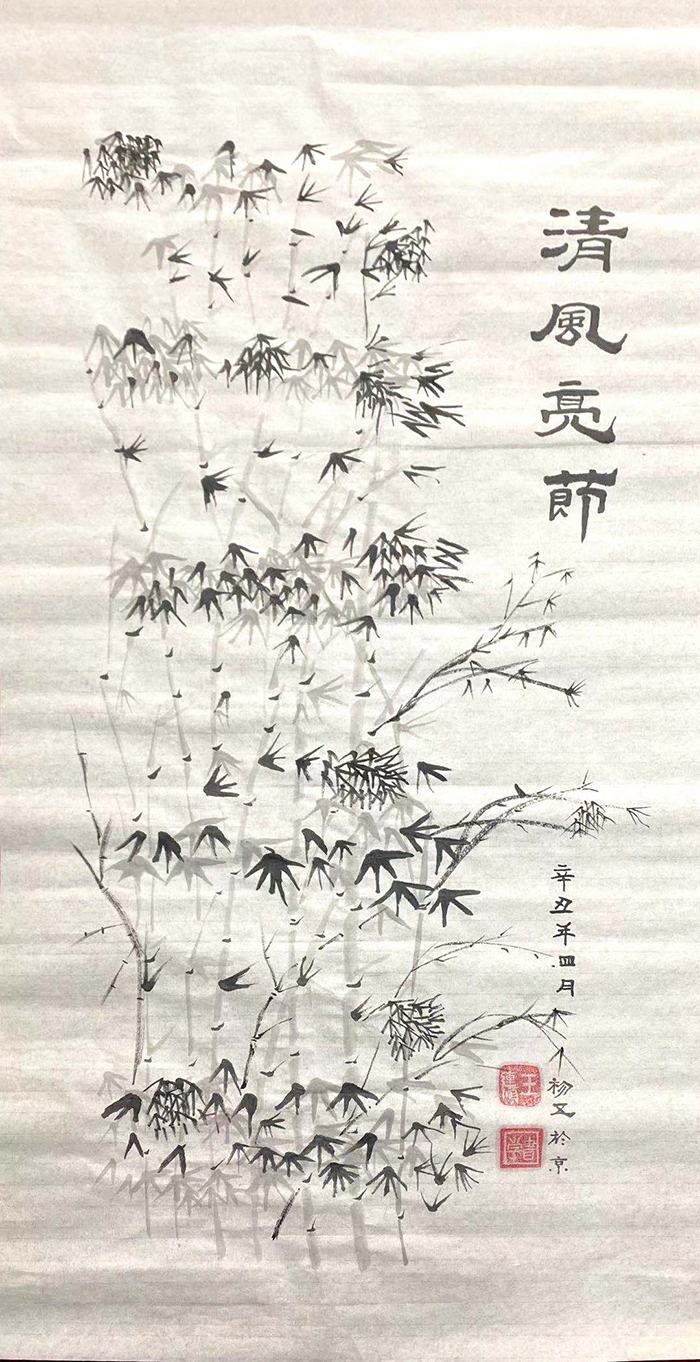 清風亮節
辛丑年四月初五於京